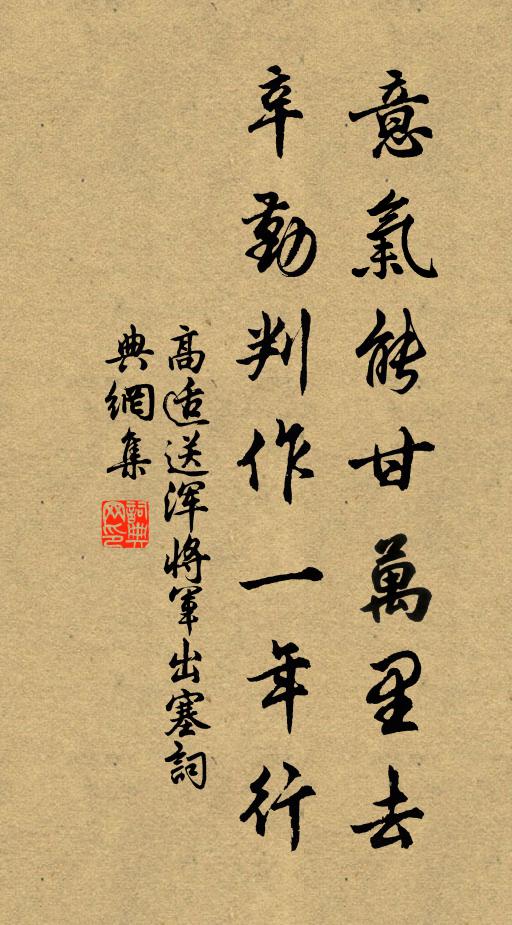 意氣能甘萬里去
辛勤判作一年行
高適送渾將軍出塞詞
典網集
詞典
网印